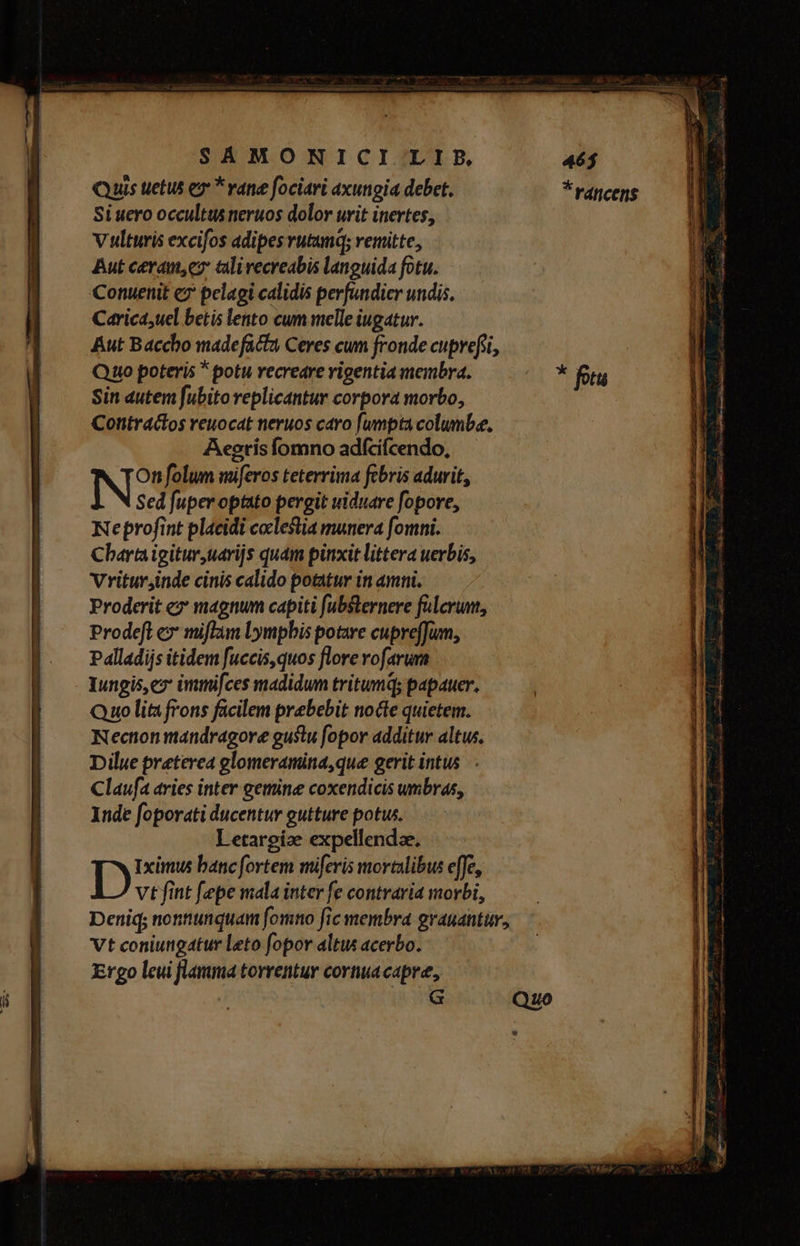 SAMONICI LIB. 465
Quis uetus & * ranæ sociari axungia debet. * rancens
Si uero occultus neruos dolor urit inertes,
Vulturis excisos adipes rutamq; remitte,
Aut ceram, & tali recreabis languida fotu.
Conuenit & pelagi calidis perfundier undis.
Carica, uel betis lento cum melle iugatur.
Aut Baccho madefacta Ceres cum fronde cupressi,
Quo poteris * potu recreare rigentia membra. * fotu
Sin autem subito replicantur corpora morbo,
Contractos reuocat neruos caro sumpta columbæ.
Aegris somno adsciscendo.
NOn solum miseros teterrima febris adurit,
Sed super optato pergit uiduare sopore,
Ne prosint placidi cœlestia munera somni.
Charta igitur, uarijs quam pinxit littera uerbis,
Vritur, inde cinis calido potatur in amni.
Proderit & magnum capiti substernere fulcrum,
Prodest & mistam lymphis potare cupressum,
Palladijs itidem succis, quos flore rosarum
Iungis, & immisces madidum tritumq; papauer.
Quo lita frons facilem præbebit nocte quietem.
Necnon mandragoræ gustu sopor additur altus.
Dilue præterea glomeramina, quæ gerit intus
Clausa aries inter geminæ coxendicis umbras,
Inde soporati ducentur gutture potus.
Letargiæ expellendæ.
DIximus hanc sortem miseris mortalibus esse,
Vt sint sæpe mala inter se contraria morbi,
Deniq; nonnunquam somno sic membra grauantur,
Vt coniungatur læto sopor altus acerbo.
Ergo leui flamma torrentur cornua capræ,
G Quo